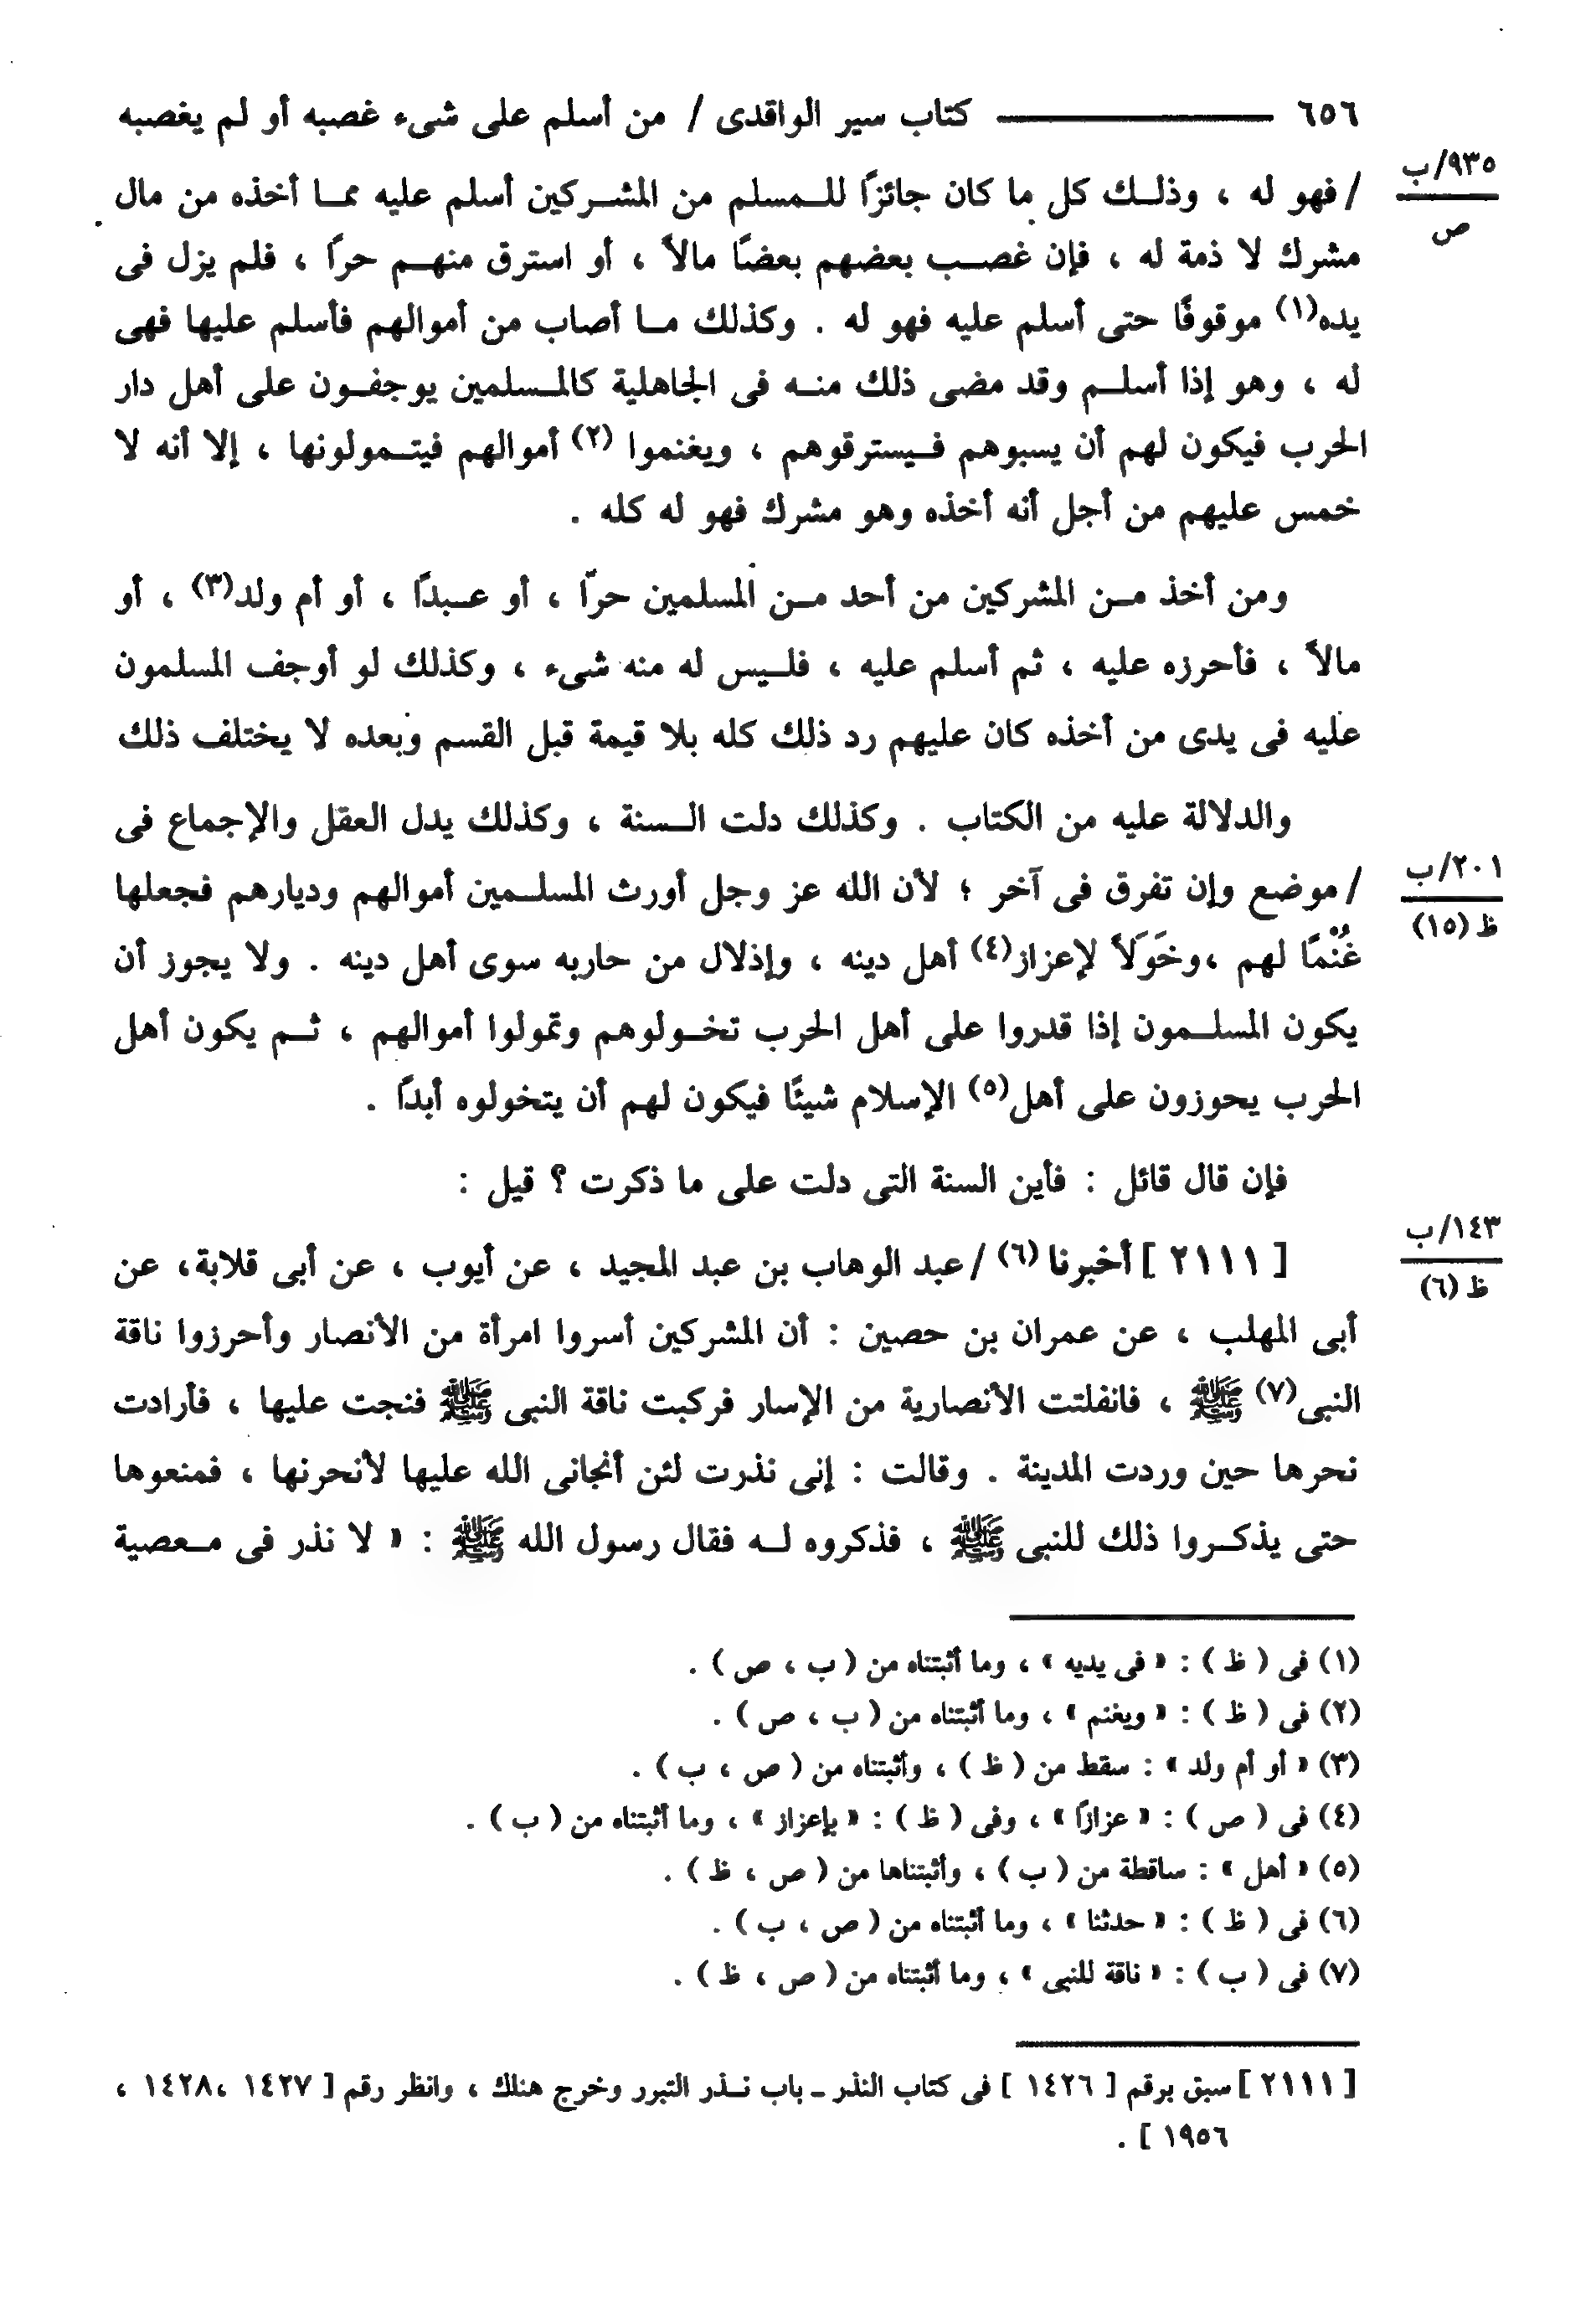 ٦٥٦ ــــــــــــ كتاب سير الواقدى / من أسلم على شىء غصبه أو لم يغصبه
٩٣٥/ب
ص
/ فهو له ، وذلك كل ما كان جائزًا للمسلم من المشركين أسلم عليه مما أخذه من مال
مشرك لا ذمة له ، فإن غصب بعضهم بعضًا مالاً ، أو استرق منهم حرًا ، فلم يزل فى
يده(١) موقوفًا حتى أسلم عليه فهو له . وكذلك ما أصاب من أموالهم فأسلم عليها فهى
له ، وهو إذا أسلم وقد مضى ذلك منه فى الجاهلية كالمسلمين يوجفون على أهل دار
الحرب فيكون لهم أن يسبوهم فيسترقوهم ، ويغنموا (٢) أموالهم فيتمولونها ، إلا أنه لا
خمس عليهم من أجل أنه أخذه وهو مشرك فهو له كله .
ومن أخذ من المشركين من أحد من المسلمين حرّا ، أو عبدًا ، أو أم ولد(٣) ، أو
مالاً ، فأحرزه عليه ، ثم أسلم عليه ، فليس له منه شىء ، وكذلك لو أوجف المسلمون
عليه فى يدى من أخذه كان عليهم رد ذلك كله بلا قيمة قبل القسم وبعده لا يختلف ذلك
والدلالة عليه من الكتاب . وكذلك دلت السنة ، وكذلك يدل العقل والإجماع فى
٢٠١/ب
ظ (١٥)
/ موضع وإن تفرق فى آخر ؛ لأن الله عز وجل أورث المسلمين أموالهم وديارهم فجعلها
غُنْمًا لهم ،وخَوَلاً لإعزاز(٤) أهل دينه ، وإذلال من حاربه سوى أهل دينه . ولا يجوز أن
يكون المسلمون إذا قدروا على أهل الحرب تخولوهم وتمولوا أموالهم ، ثم يكون أهل
الحرب يحوزون على أهل(٥) الإسلام شيئًا فيكون لهم أن يتخولوه أبدًا .
فإن قال قائل : فأين السنة التى دلت على ما ذكرت ؟ قيل :
١٤٣/ب
ظ (٦)
[ ٢١١١ ] أخبرنا (٦) / عبد الوهاب بن عبد المجيد ، عن أيوب ، عن أبى قلابة، عن
أبى المهلب ، عن عمران بن حصين : أن المشركين أسروا امرأة من الأنصار وأحرزوا ناقة
النبى(٧) ﷺ ، فانفلتت الأنصارية من الإسار فركبت ناقة النبى ﷺ فنجت عليها ، فأرادت
نحرها حين وردت المدينة . وقالت : إنى نذرت لئن أنجانى الله عليها لأنحرنها ، فمنعوها
حتى يذكروا ذلك للنبى ﷺ ، فذكروه له فقال رسول الله ﷺ : « لا نذر فى معصية
(١) فى ( ظ ) : « فى يديه » ، وما أثبتناه من ( ب ، ص ) .
(٢) فى ( ظ ) : « ويغنم » ، وما أثبتناه من ( ب ، ص ) .
(٣) « أو أم ولد » : سقط من ( ظ ) ، وأثبتناه من ( ص ، ب ) .
(٤) فى ( ص ) : « عزازًا » ، وفى ( ظ ) : « بإعزاز » ، وما أثبتناه من ( ب ) .
(٥) « أهل » : ساقطة من ( ب ) ، وأثبتناها من ( ص ، ظ ) .
(٦) فى ( ظ ) : « حدثنا » ، وما أثبتناه من ( ص ، ب ) .
(٧) فى ( ب ) : « ناقة للنبى » ، وما أثبتناه من ( ص ، ظ ) .
[ ٢١١١ ] سبق برقم [ ١٤٢٦ ] فى كتاب النذر ـ باب نذر التبرر وخرج هنلك ، وانظر رقم [ ١٤٢٧ ،١٤٢٨ ،
١٩٥٦ ] .